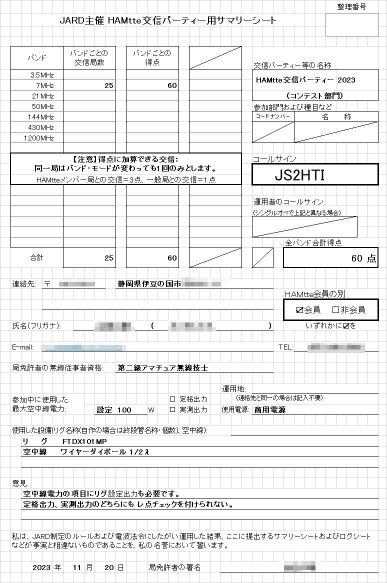 整理番号
JARD主催 HAMtte交信パーティー用サマリーシート
バンド
バンドごとの
交信局数
バンドごとの
得点
3.5MHz
7MHz 25 60
21 MHz
50MHz
144MHz
430MHz
1200MHz
【注意】得点に加算できる交信:
同一局はバンド・モードが変わっても1回のみとします。
HAMtteメンバー局との交信=3点、一般局との交信=1点
合計 25 60
交信パーティー等の名称
HAMtte交信パーティー 2023
(コンテスト部門)
参加部門および種目など
コードナンバー 名 称
コールサイン
JS2HTI
運用者のコールサイン
(シングルオペで上記と異なる場合)
全バンド合計得点
60 点
連絡先: 〒 静岡県伊豆の国市
HAMtte会員の別
☑会員 □非会員
いずれかに☑を
氏名(フリガナ) ( )
E-mail: TEL:
局免許者の無線従事者資格: 第二級アマチュア無線技士
参加中に使用した
最大空中線電力: 設定 100 W
□ 定格出力
□ 実測出力
運用地:
(連絡先と同一の場合は記入不要)
使用電源: 商用電源
使用した設備(リグ名称(自作の場合は終段管名称・個数)、空中線):
リ グ FTDX101MP
空中線 ワイヤーダイポール 1/2λ
意見
空中線電力の項目にリグ設定出力も必要です。
定格出力、実測出力のどちらにもレ点チェックを付けられない。
私は、JARD制定のルールおよび電波法令にしたがい運用した結果、ここに提出するサマリーシートおよびログシート
などが事実と相違ないものであることを、私の名誉において誓います。
2023 年 11 月 20 日 局免許者の署名